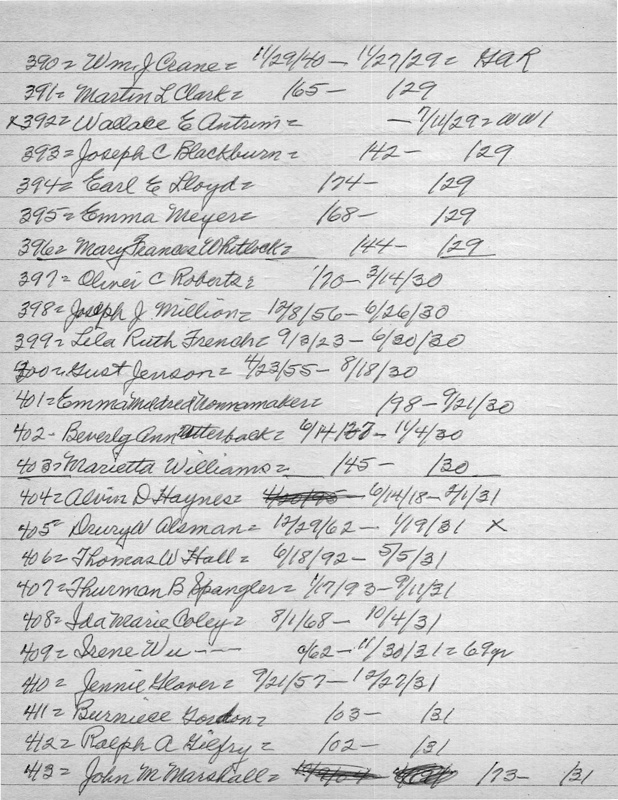 390= Wm. J Crane= 11/29/40- 11/27/29= GAR
391= Martin L Clark= /65- /29
x392= Wallace E Antrim= -7/14/29=WW1
393= Joseph C Blackburn= /42- /29
394= Earl E Lloyd= /74- /29
395= Emma Meyer= /68- /29
396= Mary Frances Whitlock= /44- /29
397= Oliver C Roberts= /70- 3/14/30
398= Joseph J Million= 12/8/56- 6/26/30
399= Lila Ruth French= 9/3/23- 6/30/30
400= Gust Jenson= 4/23/55- 8/18/30
401= Emma Mildred Wonnamaker= /98- 9/21/30
402- Beverly Ann Utterback= 6/14/27- 11/4/30
403= Marietta Williams= /45- /30
404= Alvin D Haynes= 6/14/18- 2/1/31
405= Drury W Alsman= 12/29/62- 1/19/31 x
406= Thomas W Hall= 6/18/92- 5/5/31
407= Thurman B Spangler= 1/17/93- 9/11/31
408= Ida Marie Coley= 8/1/68- 10/4/31
409= Irene Wu--- /62- 11/30/31= 69yr
410= Jennie Glover= 9/21/57- 12/27/31
411= Burniece Gordon= /03- /31
412= Ralph A Gilfry= /02- /31
413= John M Marshall= /73- /31